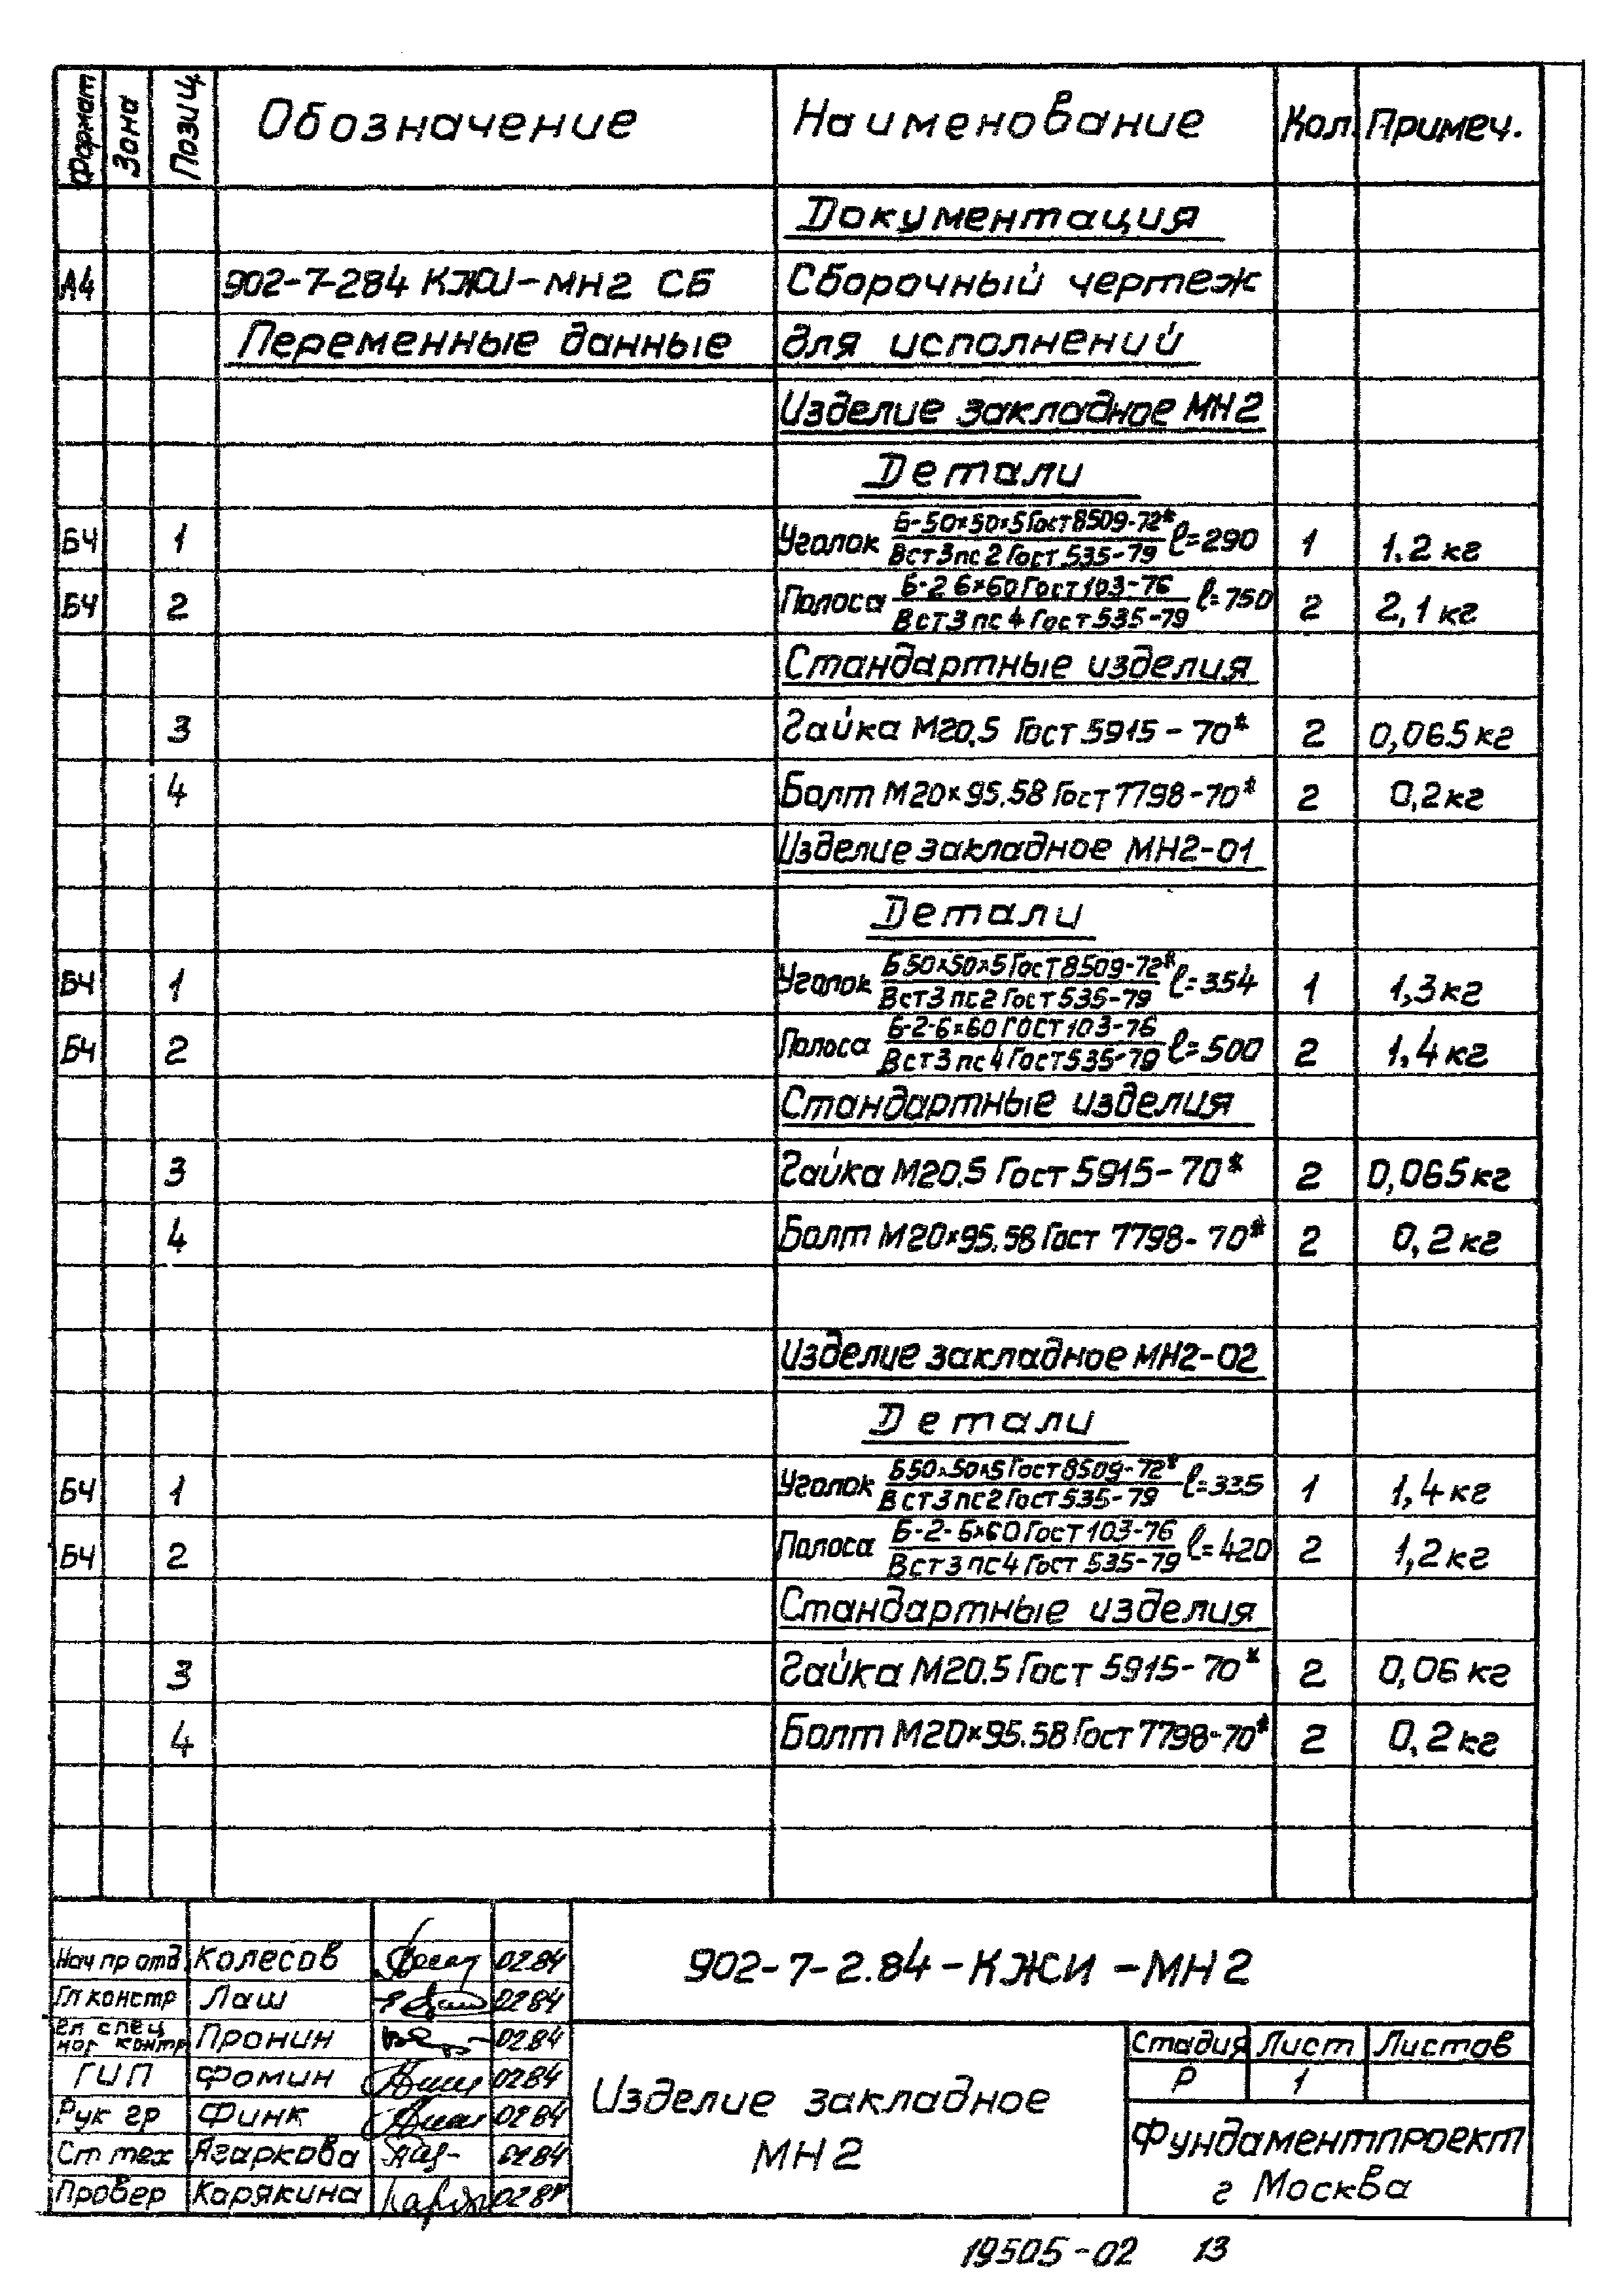 Формат Зона Позиц. Обозначение Наименование Кол. Примеч.
Документация
А4 902-7-284 КЖИ-МН2 СБ Сборочный чертеж
Переменные данные для исполнений
Изделие закладное МН2
Детали
БЧ 1 Уголок Б-50×50×5 Гост 8509-72* l=290 1 1.2 кг
ВСт3пс2 Гост 535-79
БЧ 2 Полоса Б-2 6×60 Гост 103-76 l=750 2 2,1 кг
ВСт3пс4 Гост 535-79
Стандартные изделия
3 Гайка М20.5 Гост 5915-70* 2 0,065 кг
4 Болт М20×95.58 Гост 7798-70* 2 0,2 кг
Изделие закладное МН2-01
Детали
БЧ 1 Уголок Б50×50×5 Гост 8509-72* l=354 1 1,3 кг
ВСт3пс2 Гост 535-79
БЧ 2 Полоса Б-2-6×60 ГОСТ 103-76 l=500 2 1,4 кг
ВСт3пс4 Гост 535-79
Стандартные изделия
3 Гайка М20.5 Гост 5915-70* 2 0,065 кг
4 Болт М20×95.58 Гост 7798-70* 2 0,2 кг
Изделие закладное МН2-02
Детали
БЧ 1 Уголок Б50×50×5 Гост 8509-72* l=335 1 1,4 кг
ВСт3пс2 Гост 535-79
БЧ 2 Полоса Б-2-6×60 Гост 103-76 l=420 2 1,2 кг
ВСт3пс4 Гост 535-79
Стандартные изделия
3 Гайка М20.5 Гост 5915-70* 2 0,06 кг
4 Болт М20×95.58 Гост 7798-70* 2 0,2 кг
Нач пр отд. Колесов 02.84
Гл констр Лаш 02.84
гл спец
нор контр Пронин 02.84
ГИП Фомин 02.84
Рук гр Финк 02.84
Ст тех Агаркова 02.84
Провер Карякина 02.84
902-7-2.84-КЖИ-МН2
Изделие закладное
МН2
Стадия Лист Листов
Р 1
Фундаментпроект
г Москва
19505-02 13